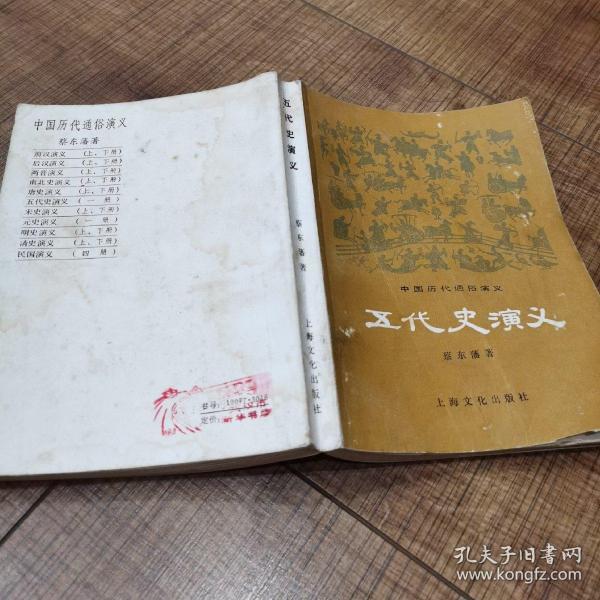 中国历代通俗演义
蔡东藩著
前汉演义 (上、下册)
后汉演义 (上、下册)
两晋演义 (上、下册)
南北史演义 (上、下册)
唐史演义 (上、下册)
五代史演义 (一册)
宋史演义 (上、下册)
元史演义 (一册)
明史演义 (上、下册)
清史演义 (上、下册)
民国演义 (四册)
书号:
定价:
新华书店
五代史演义
蔡东藩著
上海文化出版社
中国历代通俗演义
五代史演义
蔡东藩著
上海文化出版社
孔夫子旧书网
www.kongfz.com